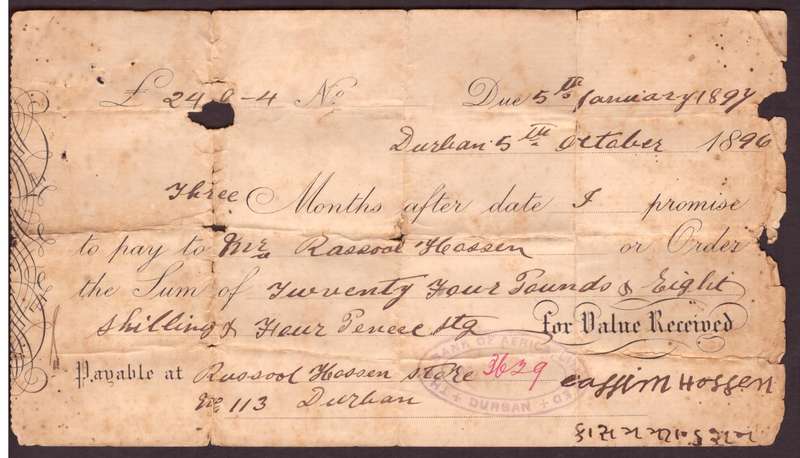 £ 24 8-4 No. Due 5th January 1897
Durban 5th October 1896
Three Months after date I promise
to pay to Mr Rassool Hossen or Order
the Sum of Twventy Four Pounds & Eight
shilling & Four Pence stg for Value Received
Payable at Rassool Hossen store 3629 cassim Hossen
No 113 Durban
BANK OF AFRICA LIMITED
DURBAN